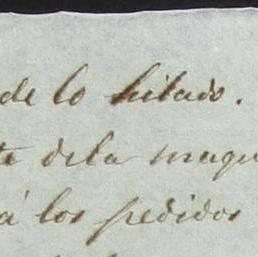 de lo hilado.
dela maqu
á los pedidos